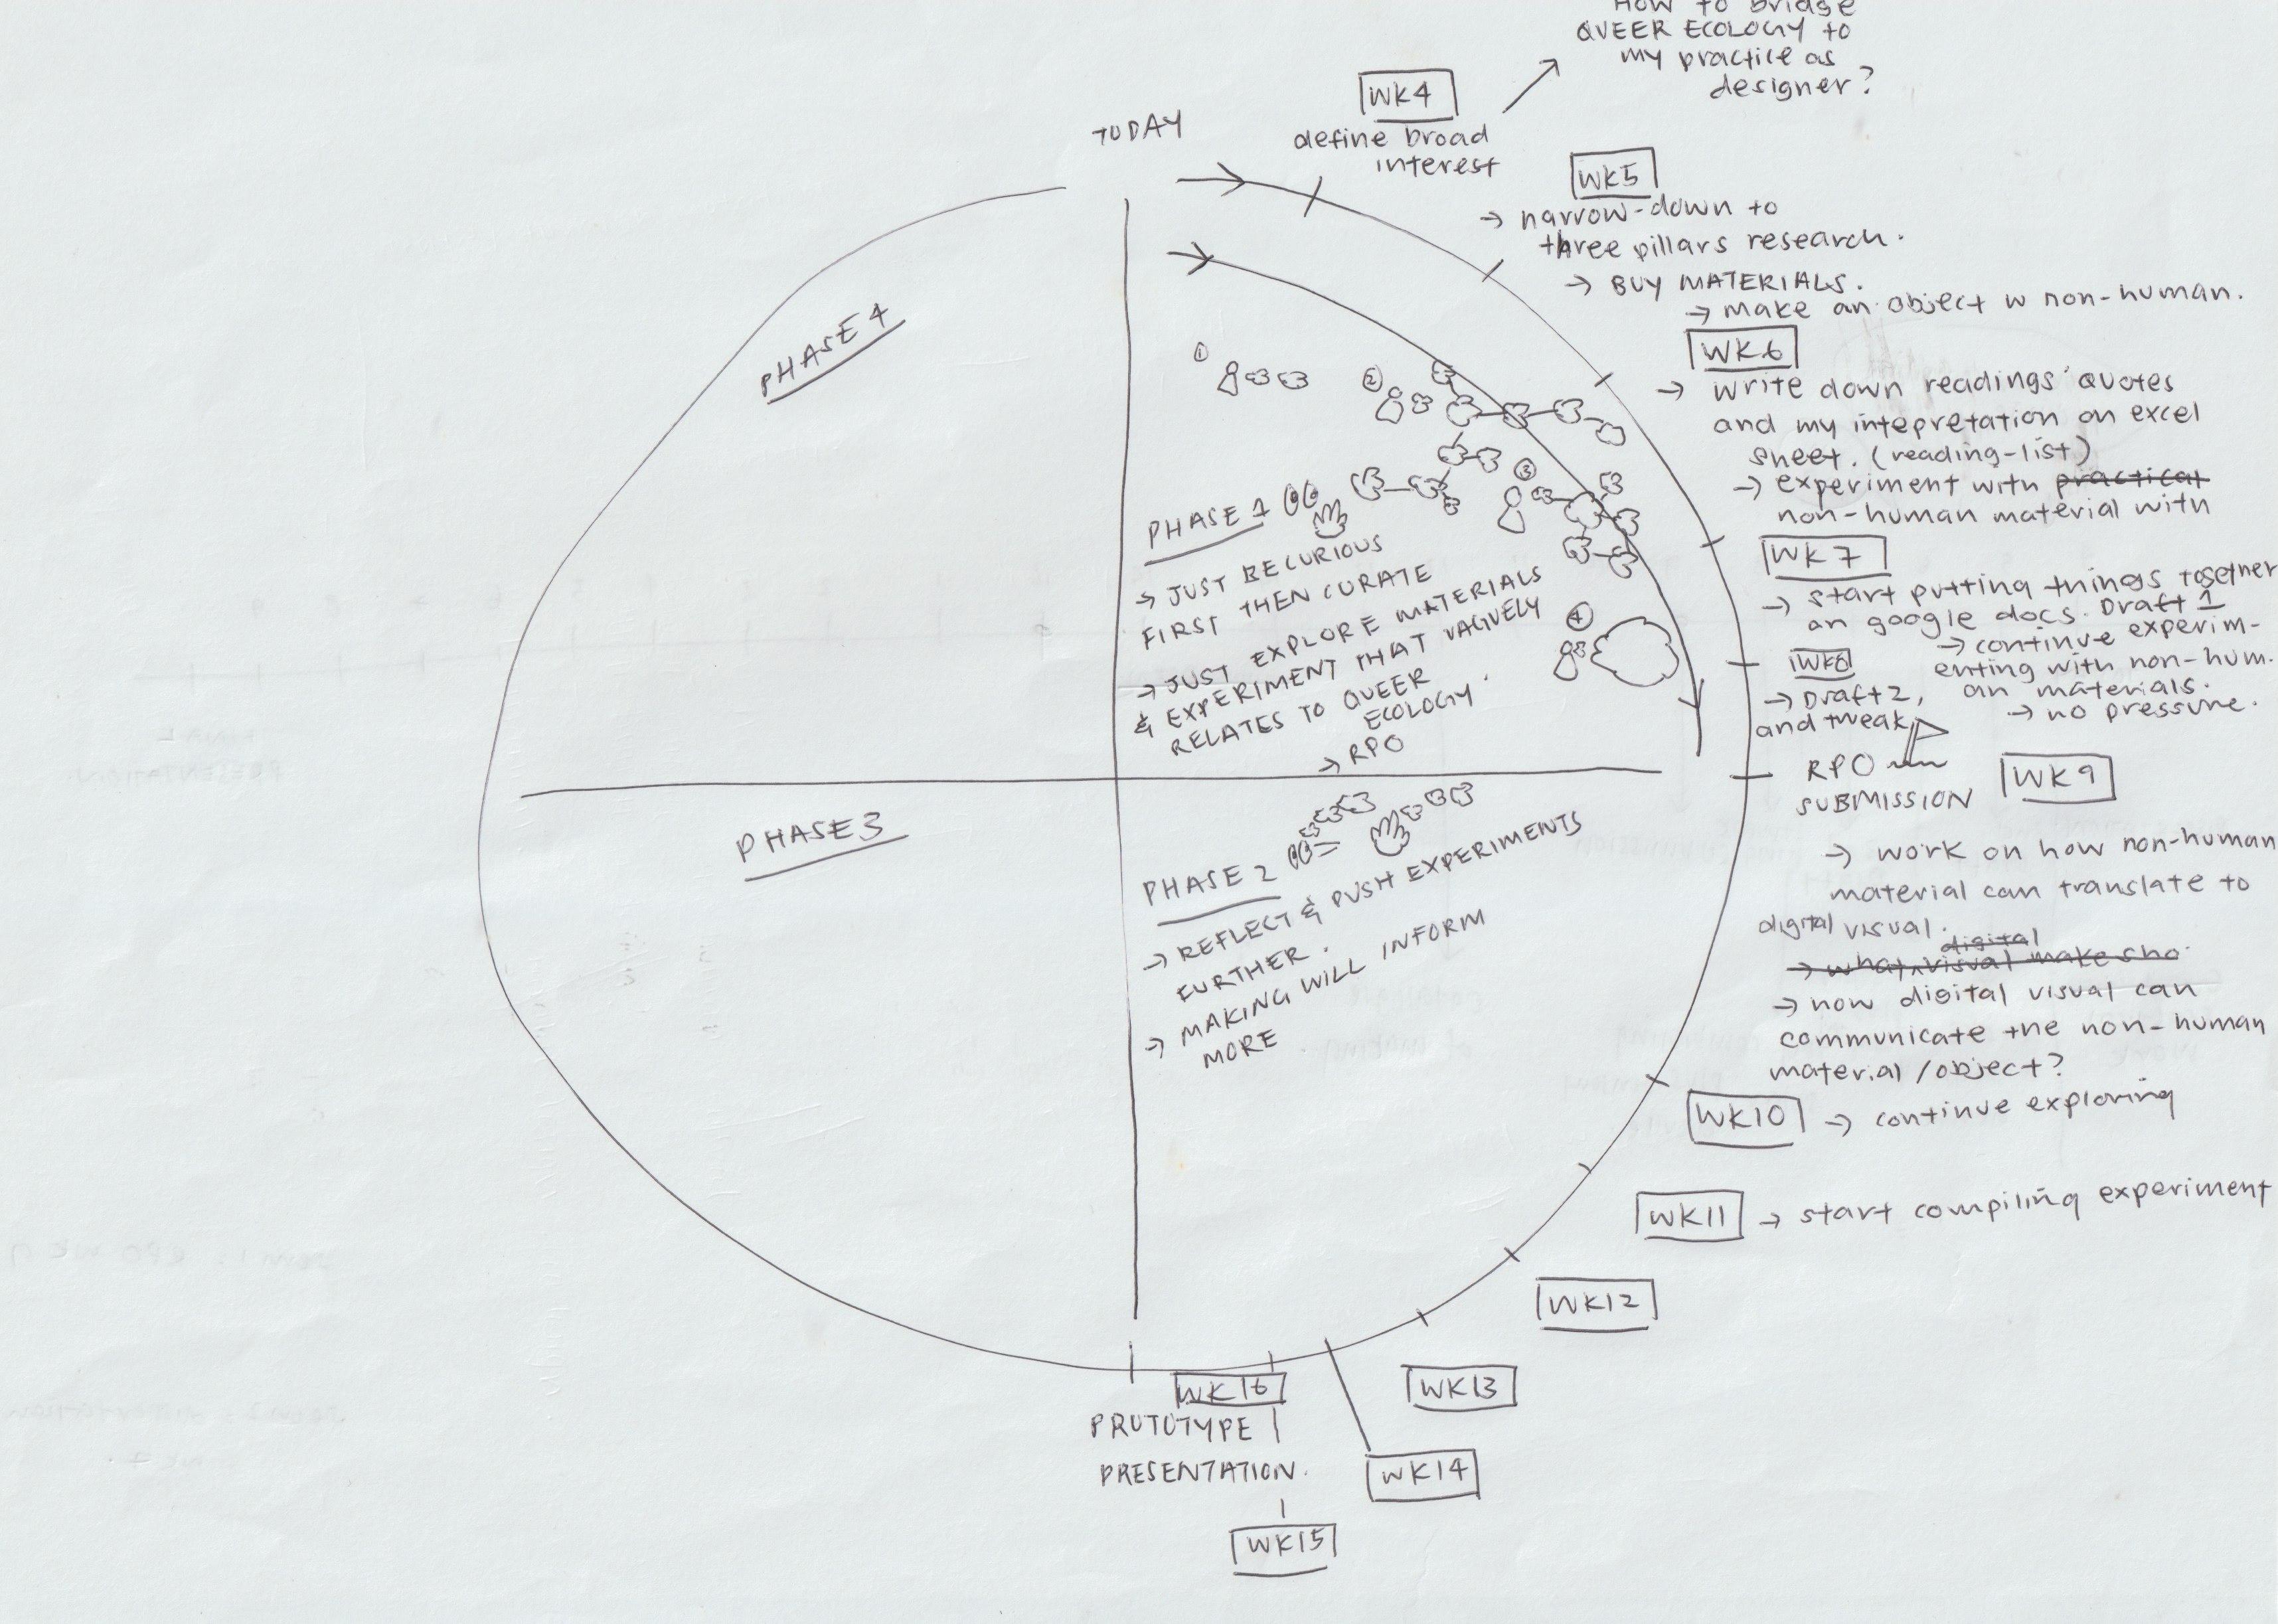 HOW to bridge
QUEER ECOLOGY to
my practice as
designer?
TODAY
WK4
define broad
interest
WK5
→ narrow-down to
three pillars research.
→ BUY MATERIALS.
→ make an object w non-human.
WK6
→ write down readings' quotes
and my intepretation on excel
sheet. (reading-list)
→ experiment with practical
non-human material with
WK7
→ start putting things together
on google docs. Draft 1
→ continue experim-
enting with non-hum.
an materials.
→ no pressure.
WK8
→ Draft 2,
and tweak
RPO
SUBMISSION
WK9
→ work on how non-human
material can translate to
digital visual.
digital
→ what visual make sho
→ how digital visual can
communicate the non-human
material/object?
WK10 → continue exploring
WK11 → start compiling experiment
WK12
WK13
WK14
WK15
WK16
PROTOTYPE
PRESENTATION.
PHASE 1
① ② ③ ④
→ JUST BE CURIOUS
FIRST THEN CURATE
→ JUST EXPLORE MATERIALS
& EXPERIMENT THAT VAGUELY
RELATES TO QUEER
ECOLOGY.
→ RPO
PHASE 2
→ REFLECT & PUSH EXPERIMENTS
FURTHER.
→ MAKING WILL INFORM
MORE
PHASE 3
PHASE 4